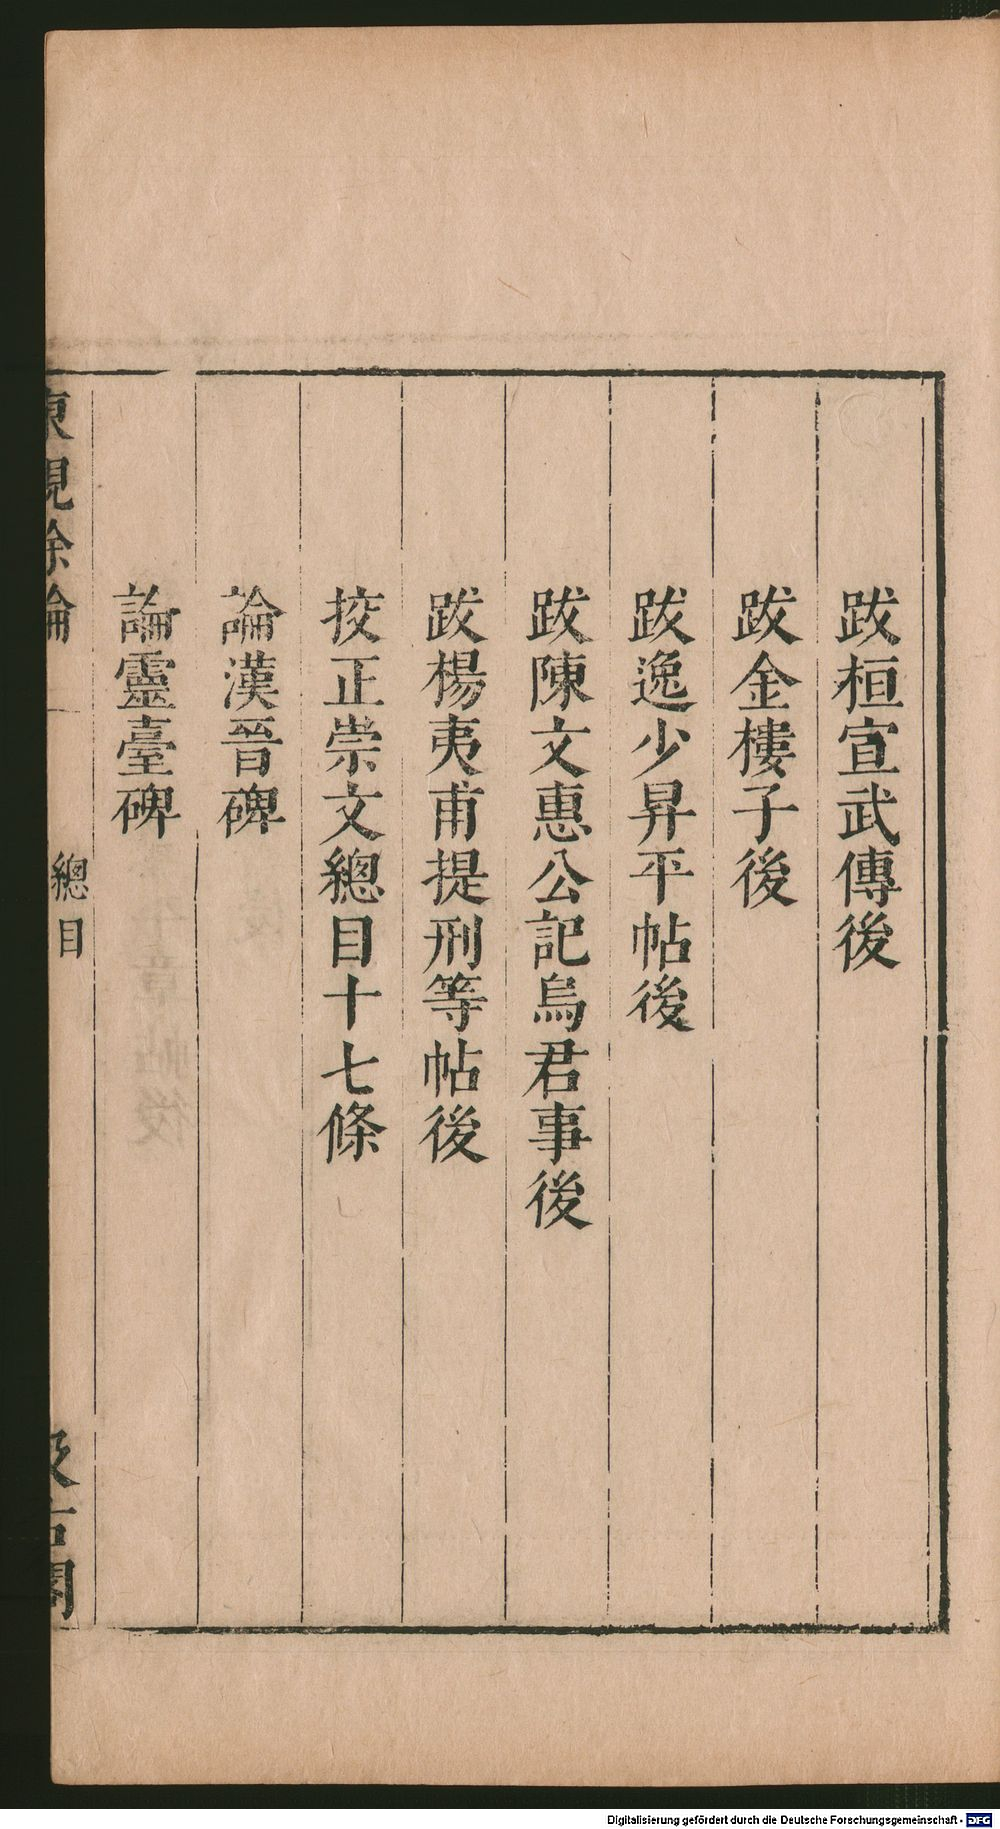 跋桓宣武傳後
跋金樓子後
跋逸少昇平帖後
跋陳文惠公記烏君事後
跋楊夷甫提刑等帖後
挍正崇文總目十七條
論漢晉碑
論靈臺碑
東觀餘論
總目
汲古閣
Digitalisierung gefördert durch die Deutsche Forschungsgemeinschaft - DFG